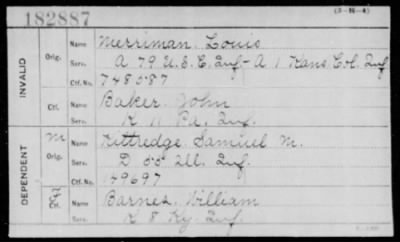 182887
(3-111-4)
INVALID
Orig.
Name Merriman, Louis
Serv. A 79 U.S.C. Inf - A 1 Kans Col. Inf
Ctf. No. 748587
Ctf.
Name Baker, John
Serv. K 11 Pa. Inf.
DEPENDENT
M
Orig.
Name Kittredge, Samuel M.
Serv. D 55 Ill. Inf.
Ctf. No. 149697
Ctf.
Name Barnes, William
Serv. K 8 Ky. Inf.